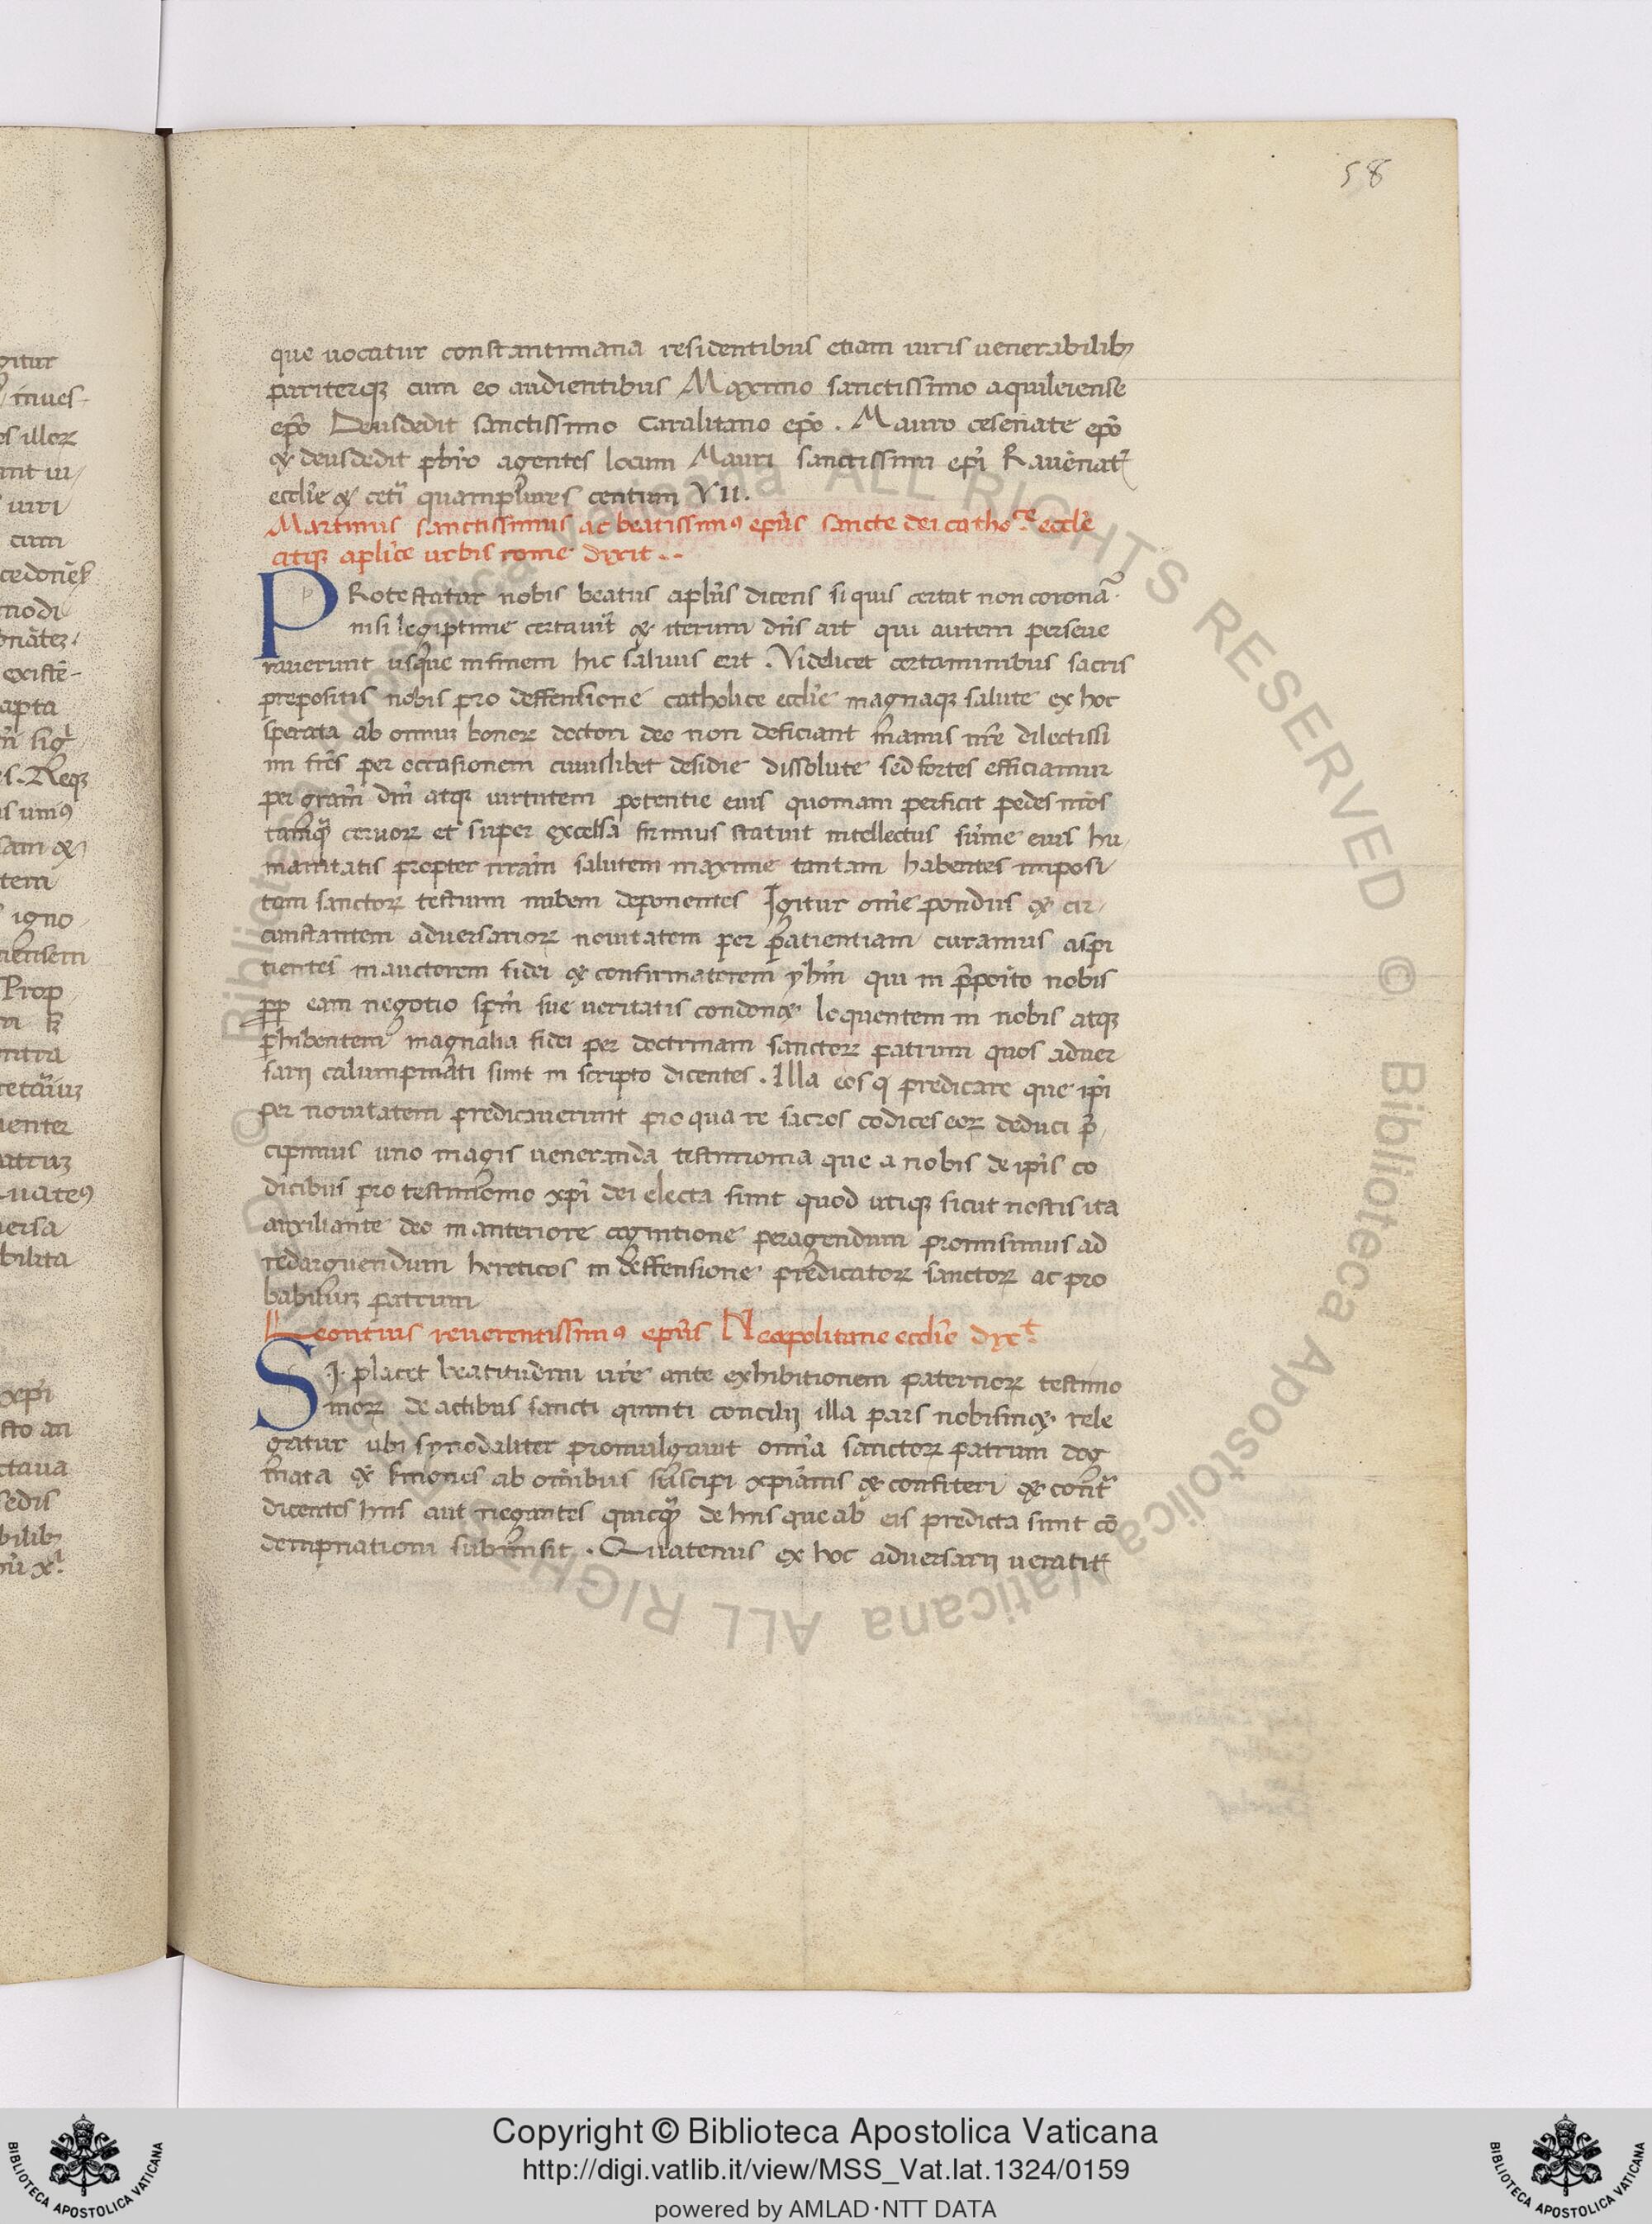 58
que uocatur constantiniana residentibus etiam uiris uenerabilibꝫ
pariterqꝫ cum eo audientibus Maximo sanctissimo aquileiense
ep̃o Deusdedit sanctissimo Caralitano ep̃o. Mauro cesenate ep̃o
& deusdedit pb̃ro agentes locum Mauri sanctissimi ep̃i Rauẽnatꝭ
eccl̃ie & cetĩ quamplures centum VII.
Martinus sanctissimus ac beatissimꝰ ep̃us sancte dei catholice eccl̃e
atqꝫ apl̃ice urbis rome dixit..
PRotestatur nobis beatus apl̃us dicens si quis certat non coronã
nisi legiptime certauit̃ & iterum dñs ait qui autem perseue
rauerunt usque in finem hic saluus erit. Videlicet certaminibus sacris
prepositis nobis pro deffensione catholice eccl̃ie magnaqꝫ salute ex hoc
sperata ab omniuꝫ bonoꝝ doctori deo non deficiant manus nr̃e dilectissi
mi fr̃es per occasionem cuiuslibet desidie dissolute sed fortes efficiamur
per gram̃ dñi atqꝫ uirtutem potentie eius quoniam perficit pedes nr̃os
tamꝙ ceruoꝝ et super excelsa firmus statuit intellectus sum̃e eius hu
manitatis propter nr̃am salutem maxime tantam habentes imposi
tam sanctoꝝ testium nubem deponentes Igitur om̃e pondus & cir
cunstantem aduersarioꝝ nouitatem per patientiam curamus aspi
tientes in auctorem fidei & confirmatorem yhm̃ qui in p̃poito nobis
pp eam negotio sp̃m sue ueritatis condon& loquentem in nobis atqꝫ
phibentem magnalia fidei per doctrinam sanctoꝝ patrum quos aduer
sarij calumpniati sunt in scripto dicentes. Illa eos q predicare que ip̃i
per nouitatem predicauerunt pro qua re sacros codices eoꝝ deduci p̃
cipimus uno magis ueneranda testimonia que a nobis de ip̃is co
dicibus pro testimonio xp̃i dei electa sunt quod utiqꝫ sicut nostis ita
auxiliante deo in anteriore cognitione peragendum promisimus ad
redarguendum hereticos in deffensione predicatoꝝ sanctoꝝ ac pro
babiliuꝫ patrum
Leontius reuerentissimꝰ ep̃us Neapolitane eccl̃ie dixᵗ
SI placet beatitudini ur̃e ante exhibitionem paternoꝝ testimo
nioꝝ de actibus sancti quinti concilij illa pars nobis sin& rele
gatur ubi synodaliter promulgauit om̃ia sanctoꝝ patrum dog
mata & sermones ab om̃ibus suscipi xp̃ianis & confiteri & cont̃
dicentes hiis aut negantes quicꝙ de hiis que ab eis predicta sunt cõ
dempnationi submisit. Quatenus ex hoc aduersarij ueratit
Copyright © Biblioteca Apostolica Vaticana
http://digi.vatlib.it/view/MSS_Vat.lat.1324/0159
powered by AMLAD·NTT DATA